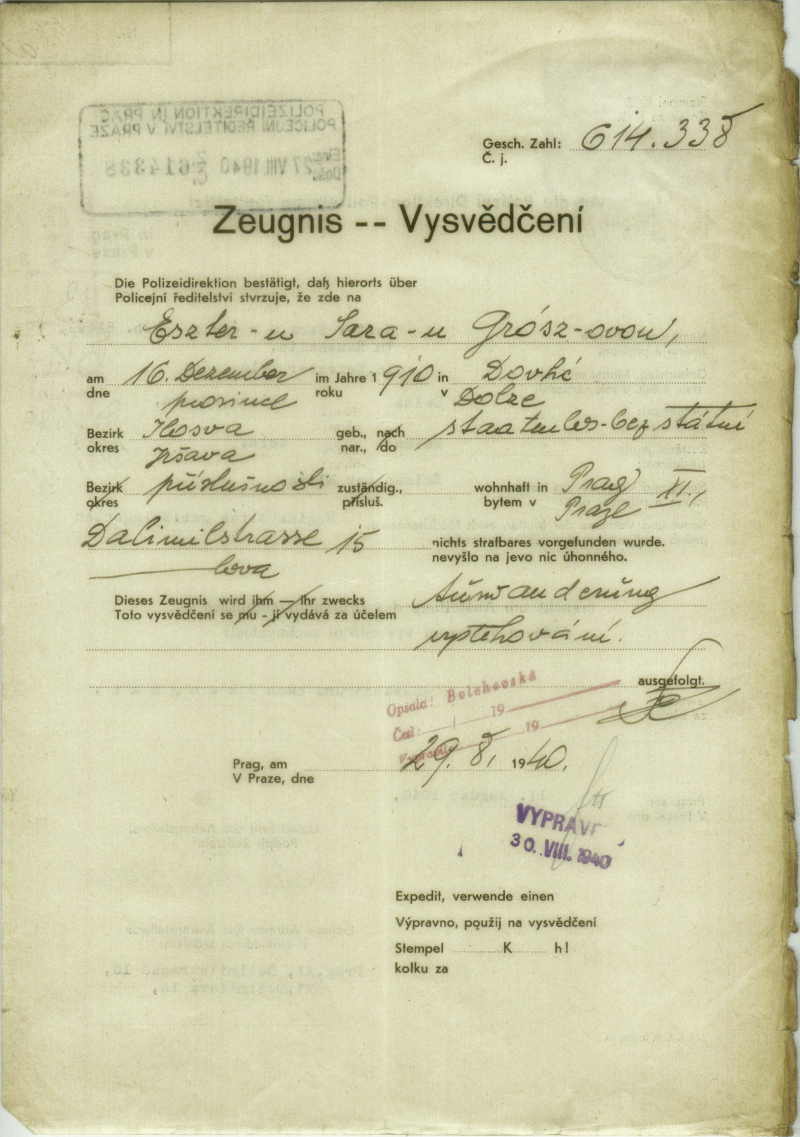 POLIZEIDIREKTION IN PRAG
POLICEJNÍ ŘEDITELSTVÍ V PRAZE
27 VIII 1940 614338
Gesch. Zahl: 614.338
Č. j.
Zeugnis -- Vysvědčení
Die Polizeidirektion bestätigt, daß hierorts über
Policejní ředitelství stvrzuje, že zde na
Eszter-u Sara-u Grósz-ovou,
am 16. Dezember im Jahre 1910 in Dovhé
dne prosince roku v Dolze
Bezirk Ilosva geb., nach staatenlos-bez státní
okres Iršava nar., do
Bezirk příslušnosti zuständig., wohnhaft in Prag XI.,
okres přísluš. bytem v Praze
Dalimilstrasse 15 nichts strafbares vorgefunden wurde.
lova nevyšlo na jevo nic úhonného.
Dieses Zeugnis wird ihm — ihr zwecks Auswanderung
Toto vysvědčení se mu - jí vydává za účelem
vystěhování.
ausgefolgt.
Opsala: Bolehovská
Čet: 19
19
Prag, am 29. 8. 1940.
V Praze, dne
VYPRAV
30. VIII. 1940
Expedit, verwende einen
Výpravno, použij na vysvědčení
Stempel K h!
kolku za